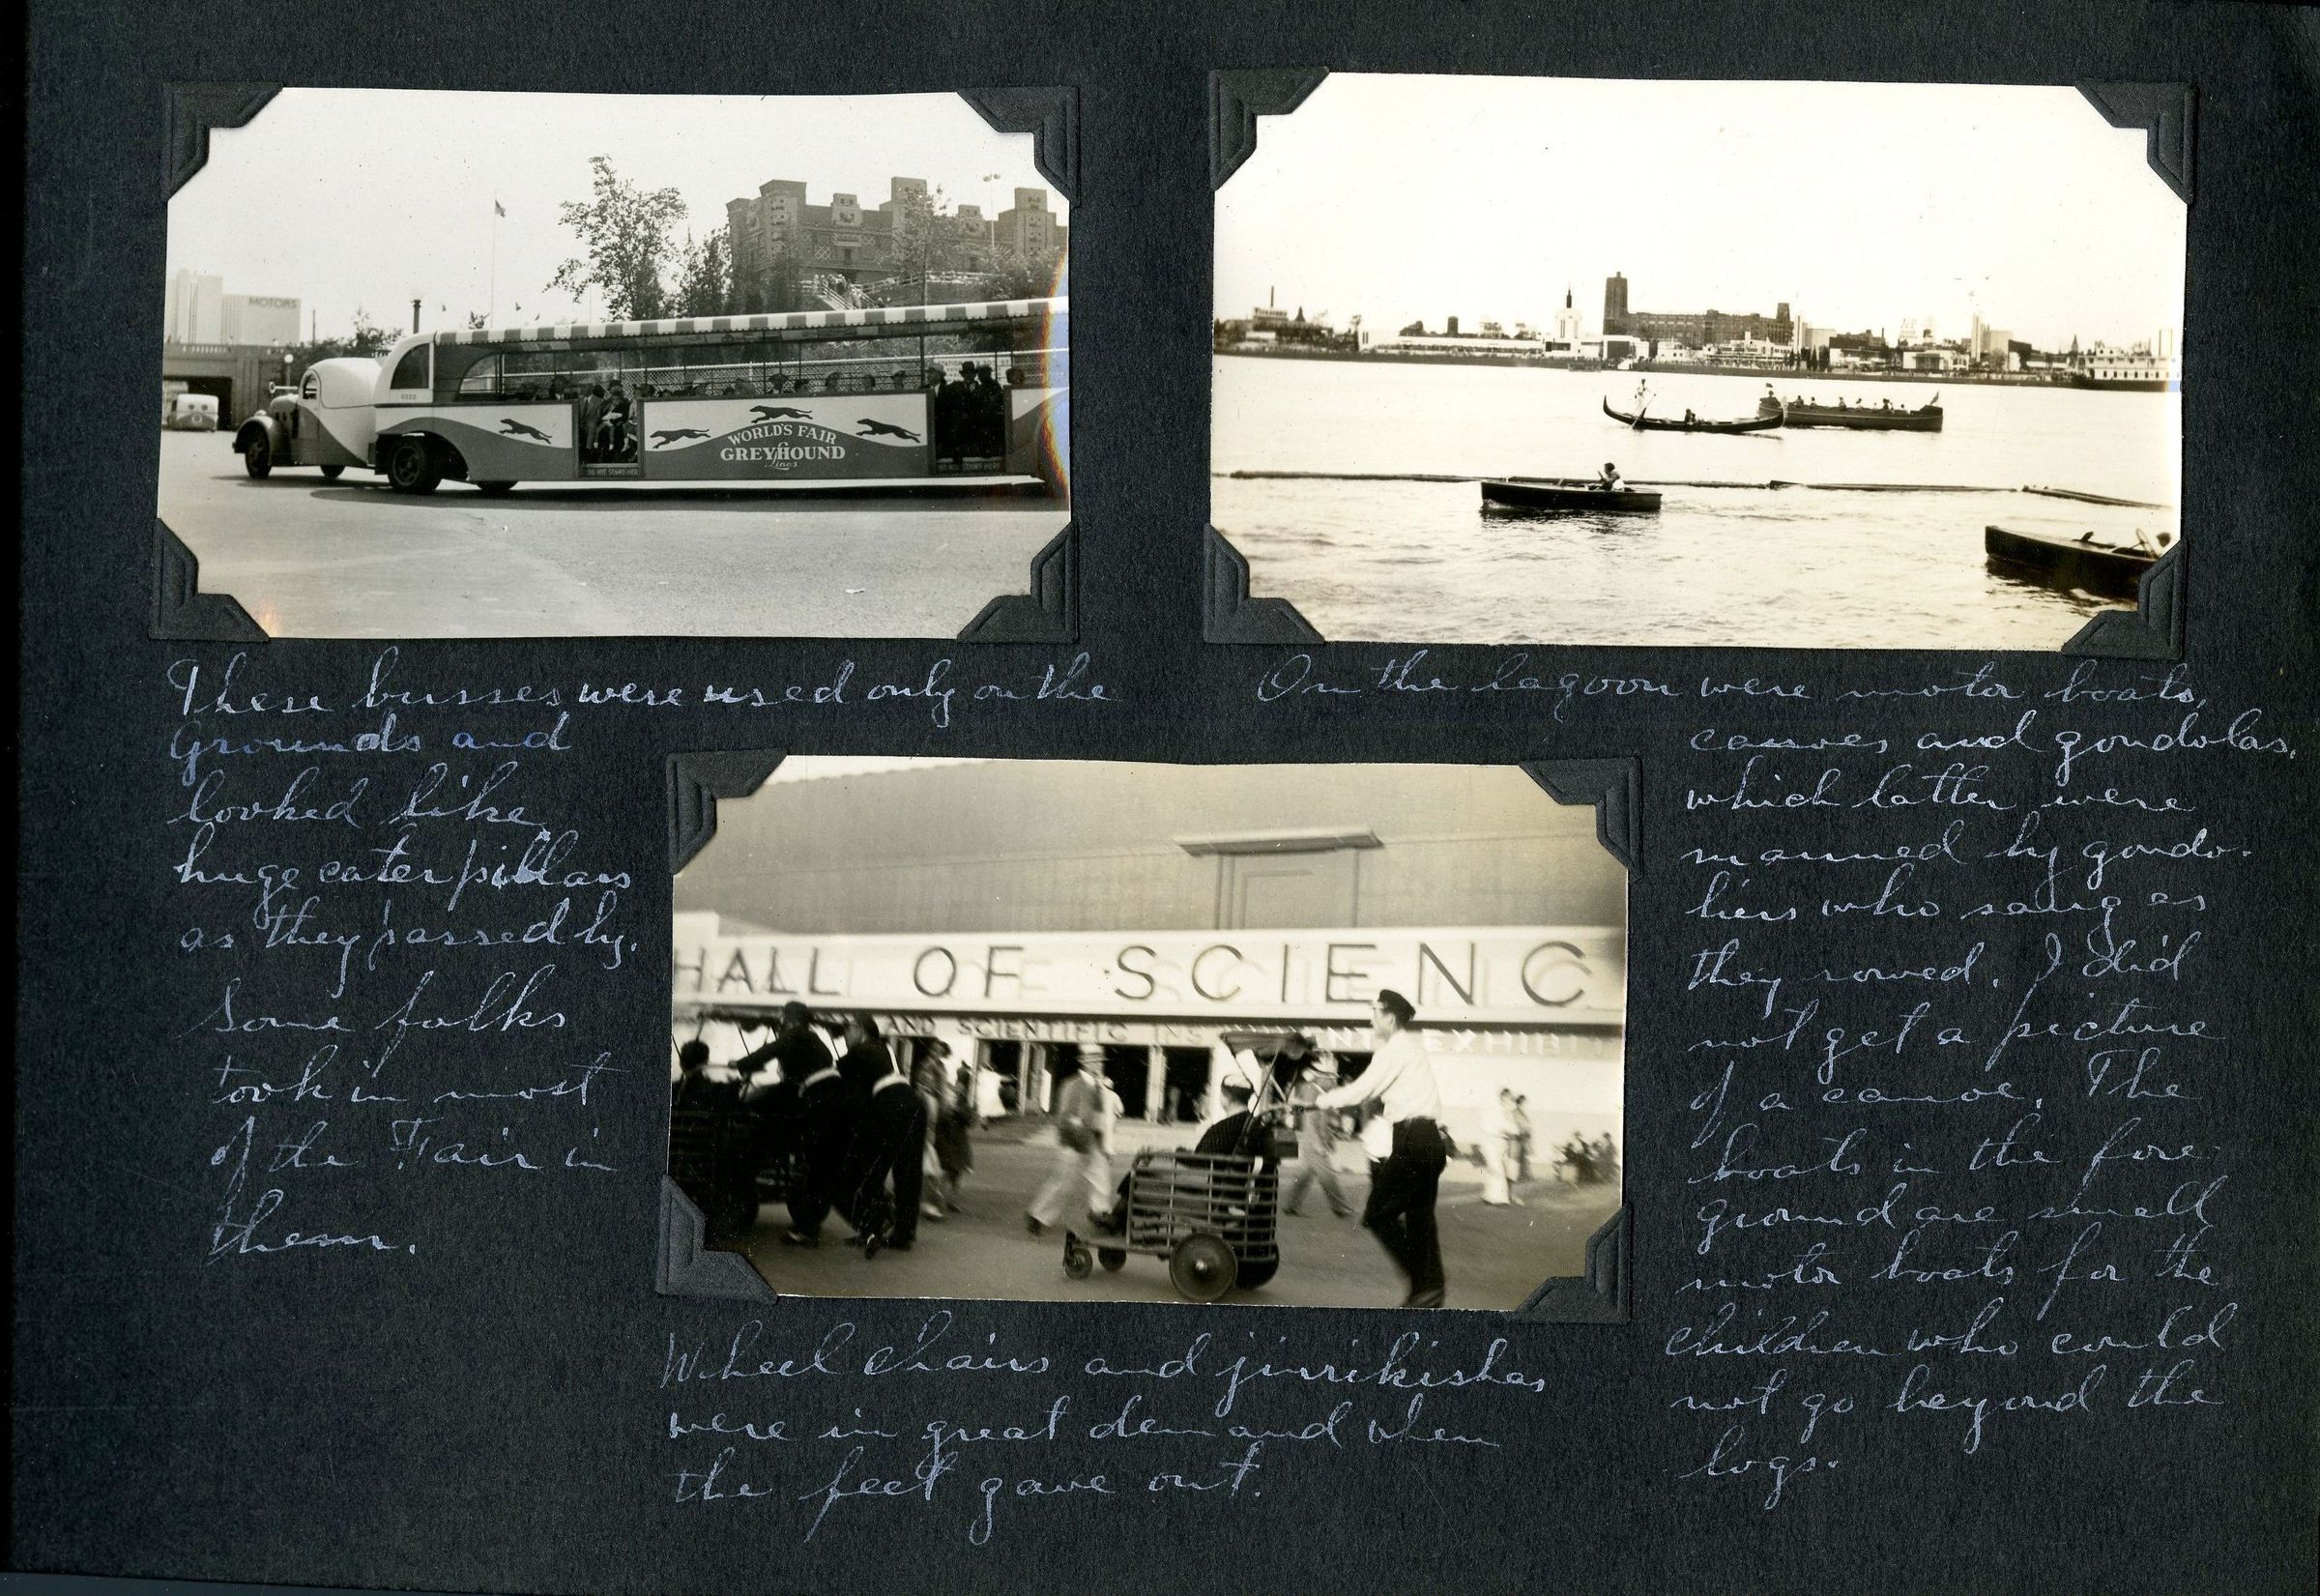 MOTORS
WORLD'S FAIR
GREYHOUND
Lines
DO NOT STAND HERE
DO NOT STAND HERE
These busses were used only on the
Grounds and
looked like
huge caterpillars
as they passed by.
Some folks
took in most
of the Fair in
them.
On the lagoon were motor boats,
canoes and gondolas,
which latter were
manned by gondo-
liers who sang as
they rowed. I did
not get a picture
of a canoe. The
boats in the fore-
ground are small
motor boats for the
children who could
not go beyond the
logs.
HALL OF SCIENC
AND SCIENTIFIC INS NT EXHIBI
Wheel chairs and jinrikishas
were in great demand when
the feet gave out.